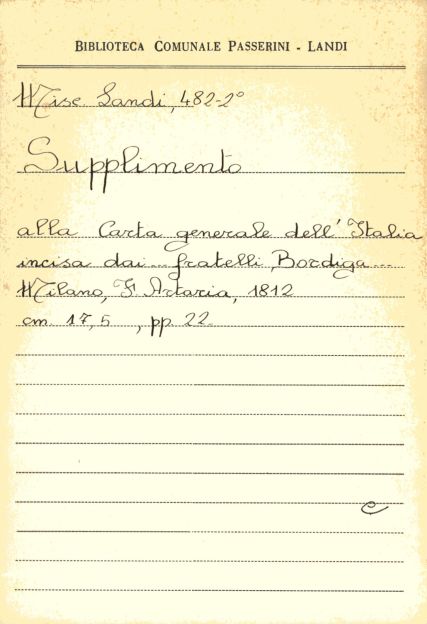 BIBLIOTECA COMUNALE PASSERINI - LANDI
Misc. Landi, 482-2°
Supplimento
alla Carta generale dell'Italia
incisa dai... fratelli Bordiga...
Milano, F. Artaria, 1812
cm. 17,5 , pp. 22.
e